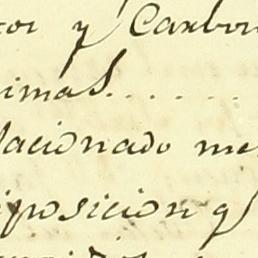 tor y Carbon
imas.......
lacionado me
iposicion q